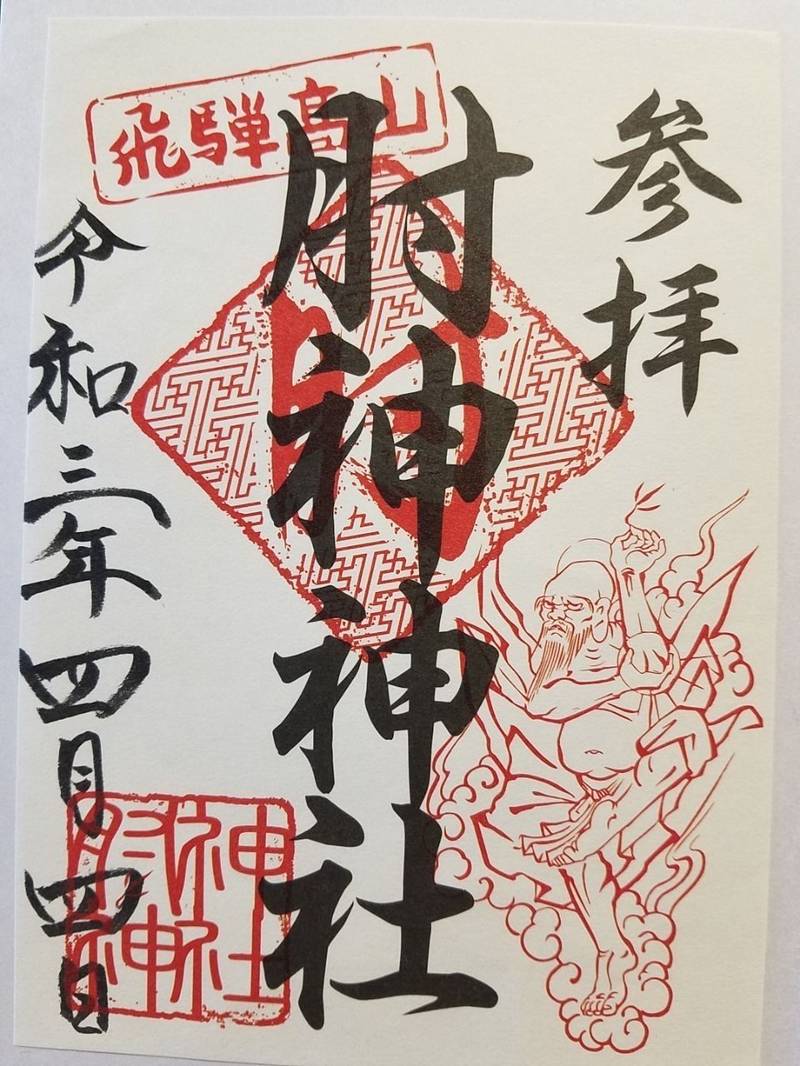 参拝
飛騨高山
肘神神社
令和三年四月四日
肘神
神社